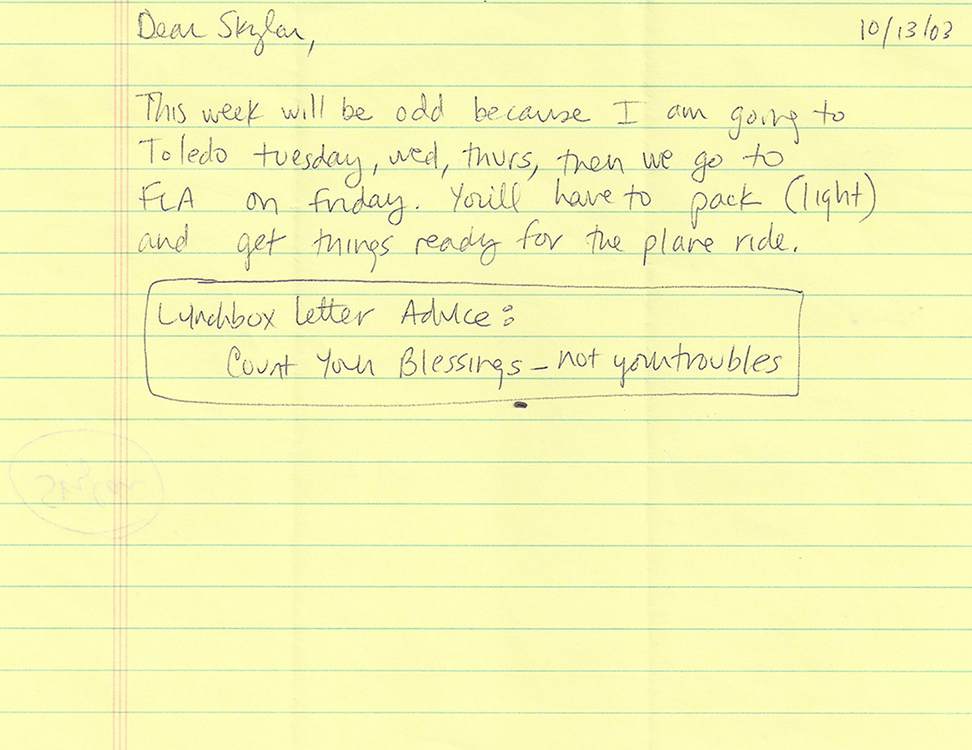 Dear Skylar,
10/13/03
This week will be odd because I am going to
Toledo tuesday, wed, thurs, then we go to
FLA on friday. You'll have to pack (light)
and get things ready for the plane ride.
Lunchbox letter Advice:
Count Your Blessings - not your troubles
Skylar